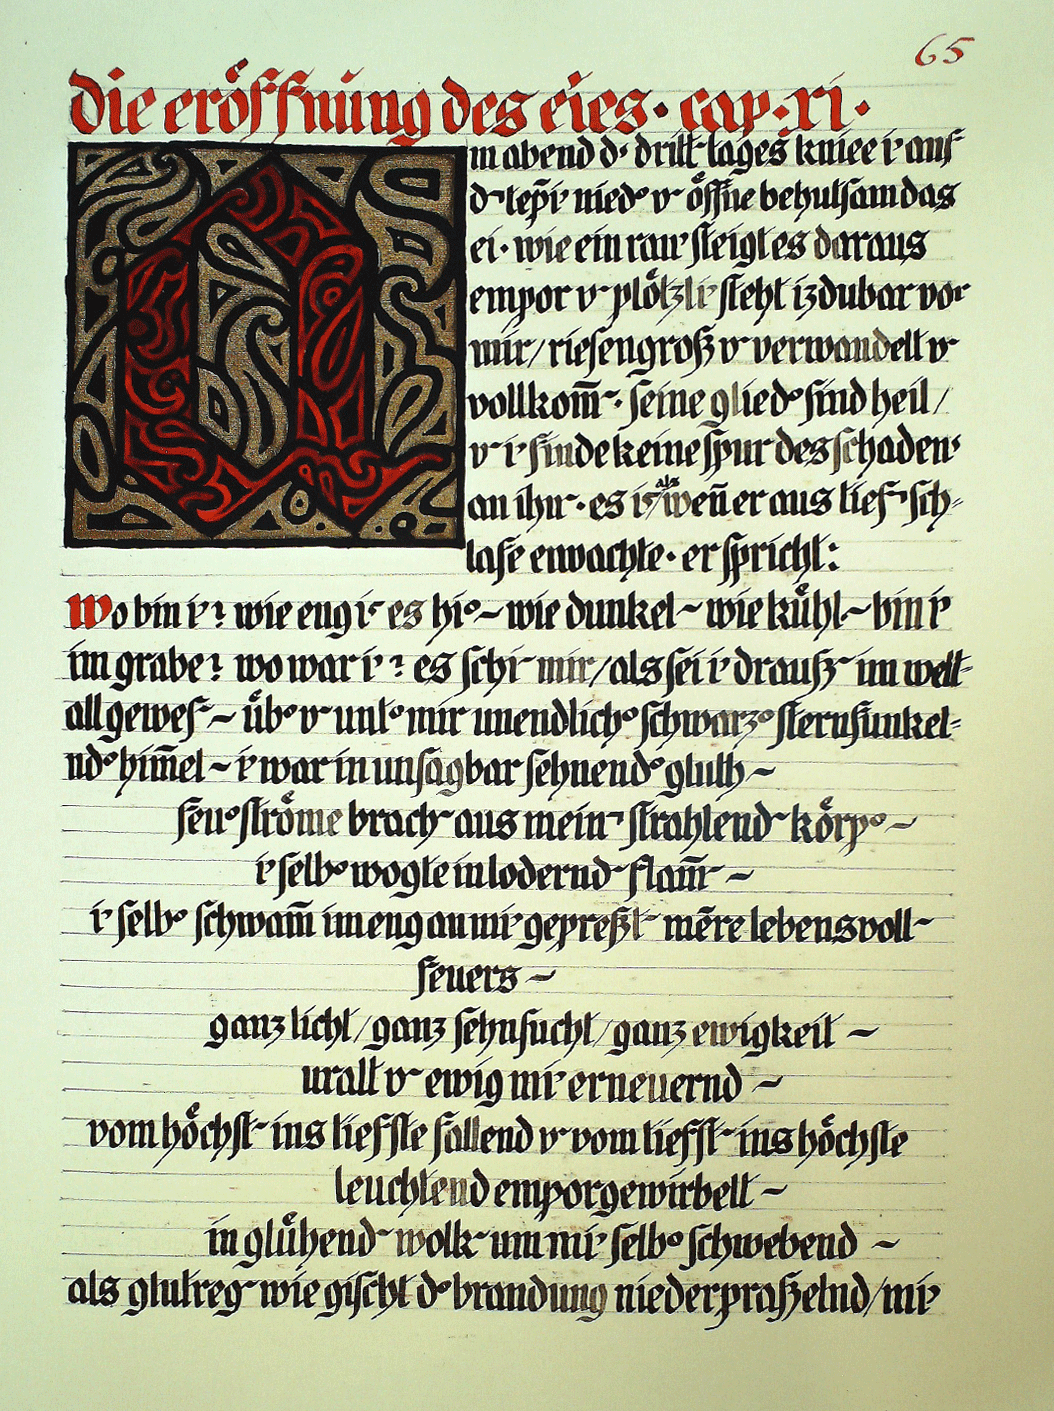 65
die eröffnung des eies · cap · xi ·
Am abend d° dritt~ tages kniee i' auf
d~ tepi' nied° v~ öffne behutsam das
ei · wie ein rau' steigt es daraus
empor v~ plötzli' steht izdubar vor
mir / riesengroß v~ verwandelt v~
vollkom̄~ · seine glied° sind heil /
v~ i' finde keine spur des schadens
an ihn~ · es i~ / als wen̄ er aus tief~ sch=
lafe erwachte · er spricht :
Wo bin i' ? wie eng i~ es hi° ~ wie dunkel ~ wie kühl ~ bin i'
im grabe ? wo war i' ? es schi~ mir / als sei i' drauß~ im welt=
all gewes~ ~ üb° v~ unt° mir unendlich° schwarz° sternfunkel=
nd° him̄el ~ i' war in unsagbar sehnend° gluth ~
feu° ströme brach~ aus mein~ strahlend~ körp° ~
i' selb° wogte in lodernd~ flam̄~ ~
i' selb° schwam̄ in eng an mi' gepreßt~ mēre lebensvoll~
feuers ~
ganz licht / ganz sehnsucht / ganz ewigkeit ~
uralt v~ ewig mi' erneuernd ~
vom höchst~ ins tiefste fallend v~ vom tiefst~ ins höchste
leuchtend emporgewirbelt ~
in glühend~ wolk~ um mi' selb° schwebend ~
als glutreg~ wie gischt d° brandung niederpraßelnd / mi'